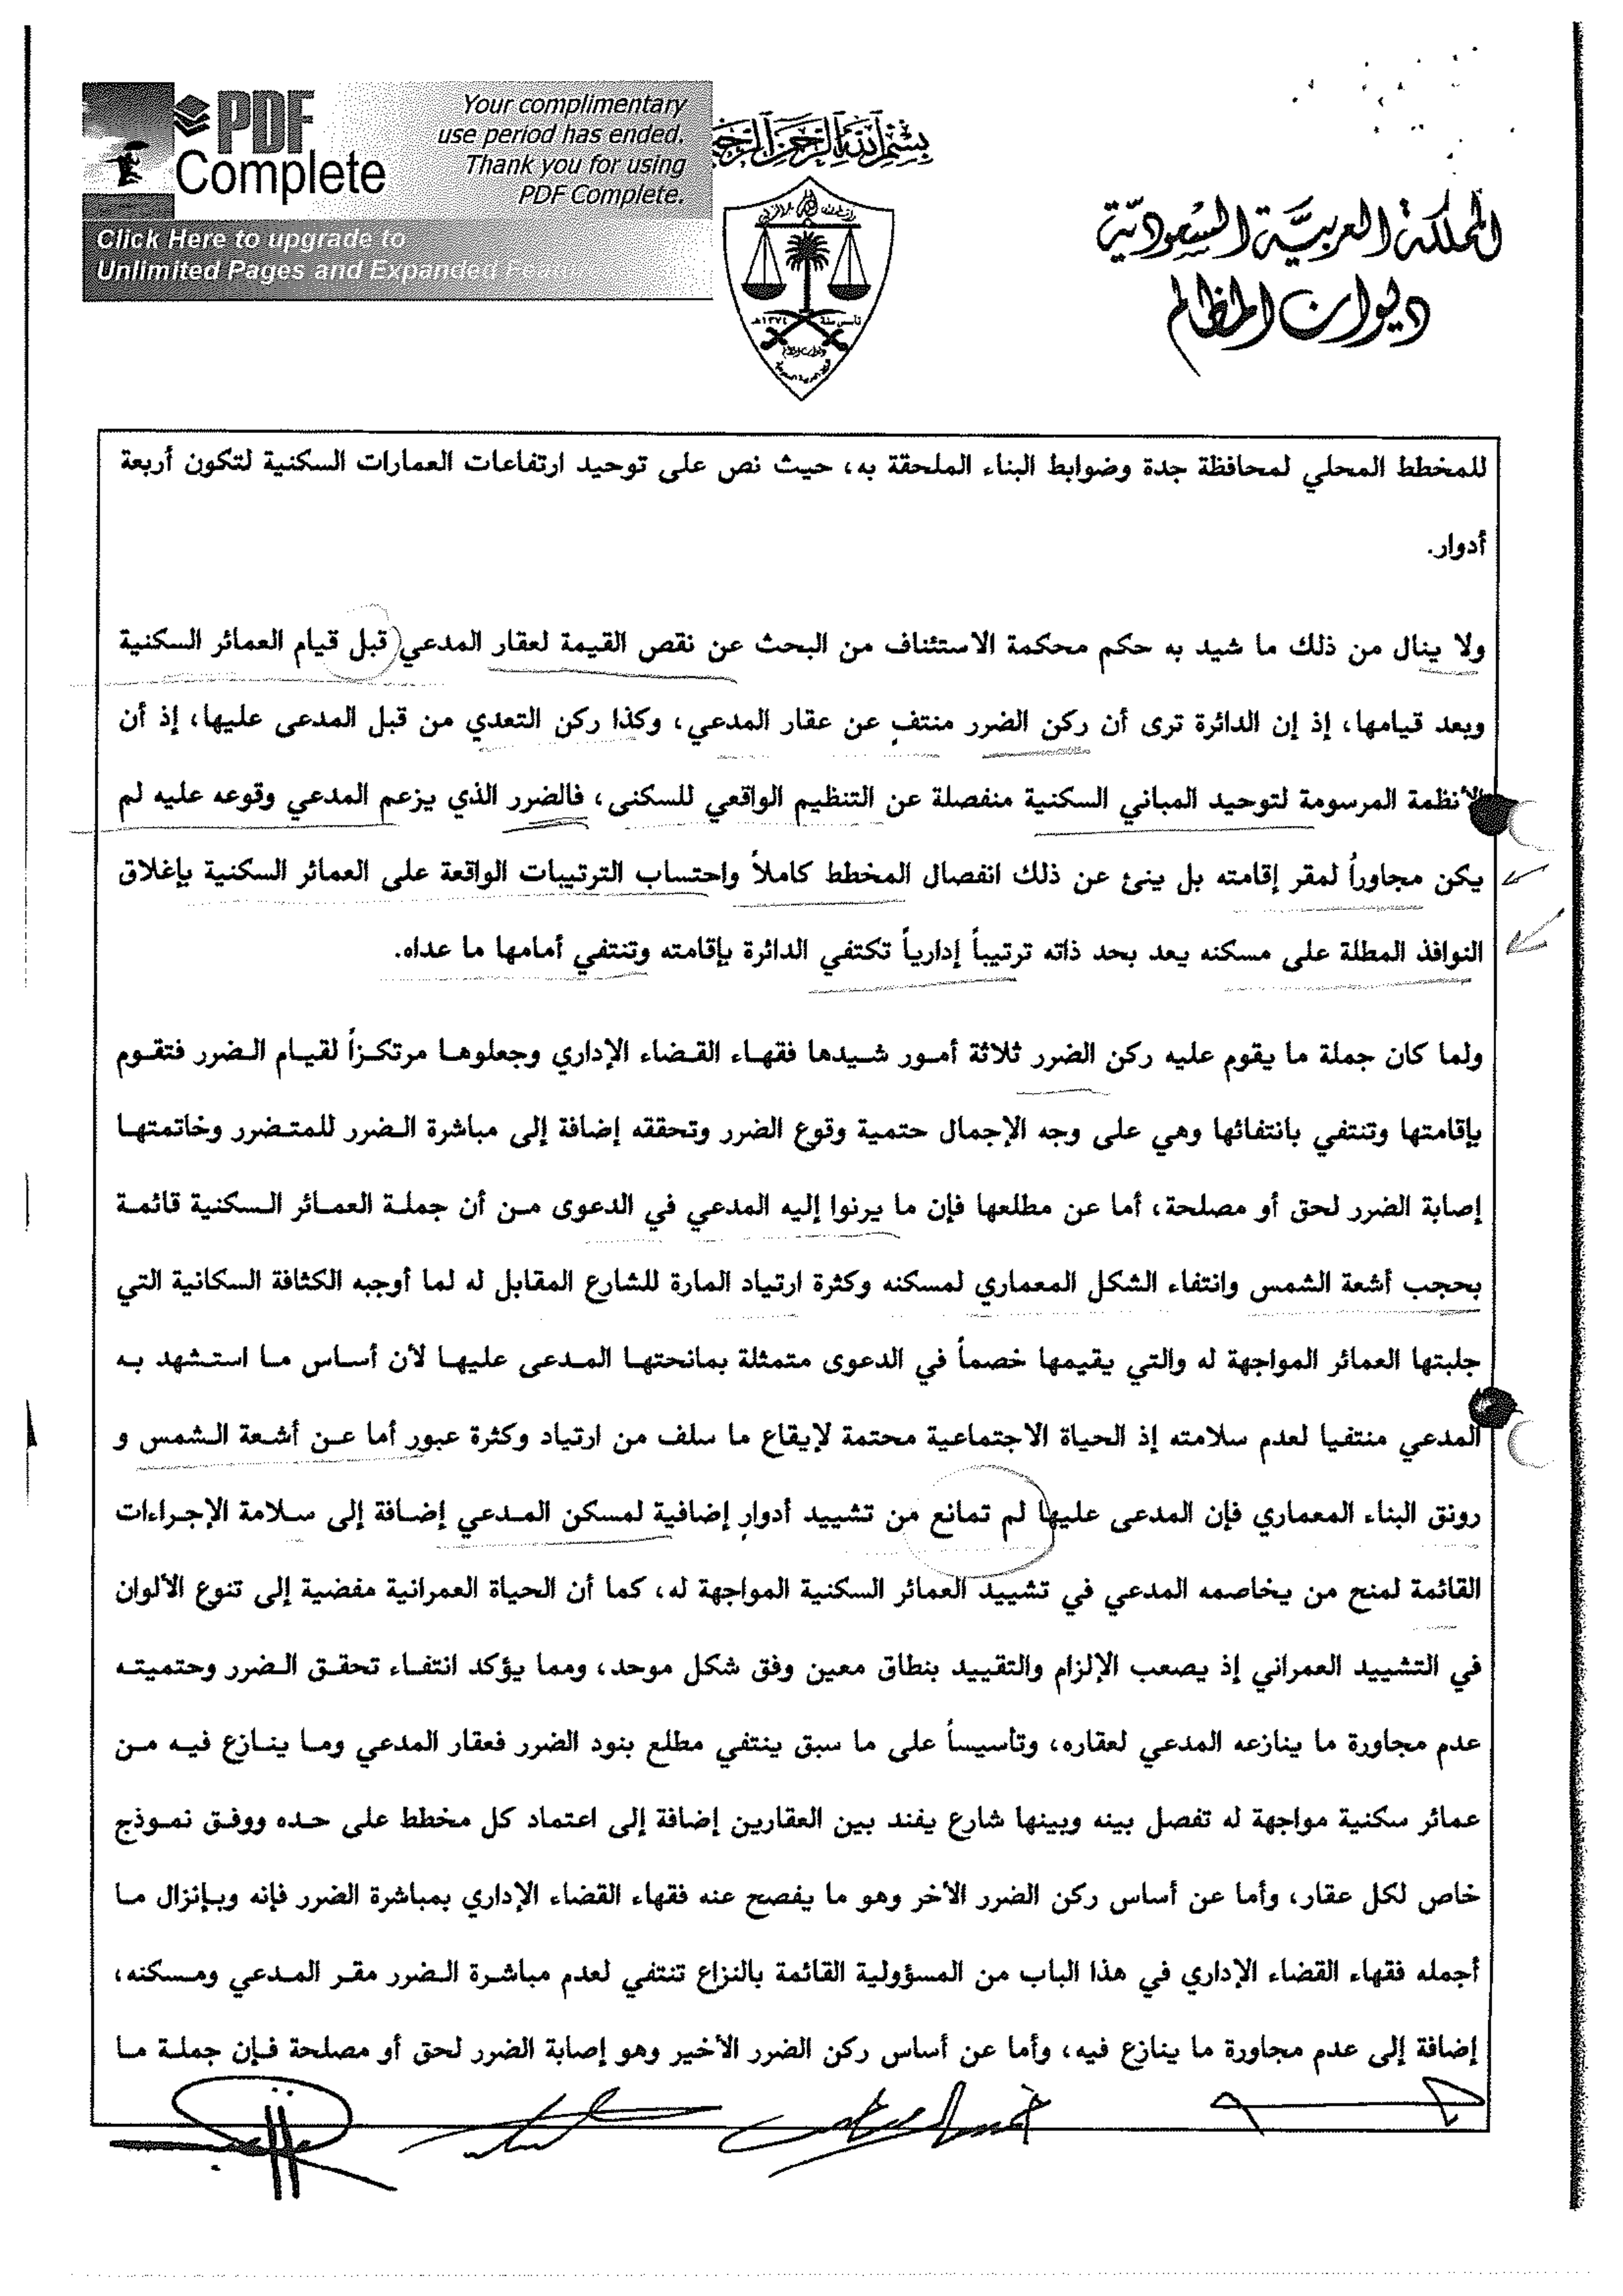 PDF
Complete
Your complimentary
use period has ended.
Thank you for using
PDF Complete.
Click Here to upgrade to
Unlimited Pages and Expanded
بسم الله الرحمن الرحيم
المملكة العربية السعودية
ديوان المظالم
تأسس سنة ١٣٧٤هـ
للمخطط المحلي لمحافظة جدة وضوابط البناء الملحقة به، حيث نص على توحيد ارتفاعات العمارات السكنية لتكون أربعة
أدوار.
ولا ينال من ذلك ما شيد به حكم محكمة الاستئناف من البحث عن نقص القيمة لعقار المدعي قبل قيام العمائر السكنية
وبعد قيامها، إذ إن الدائرة ترى أن ركن الضرر منتفٍ عن عقار المدعي، وكذا ركن التعدي من قبل المدعى عليها، إذ أن
الأنظمة المرسومة لتوحيد المباني السكنية منفصلة عن التنظيم الواقعي للسكنى، فالضرر الذي يزعم المدعي وقوعه عليه لم
يكن مجاوراً لمقر إقامته بل ينئ عن ذلك انفصال المخطط كاملاً واحتساب الترتيبات الواقعة على العمائر السكنية بإغلاق
النوافذ المطلة على مسكنه يعد بحد ذاته ترتيباً إدارياً تكتفي الدائرة بإقامته وتنتفي أمامها ما عداه.
ولما كان جملة ما يقوم عليه ركن الضرر ثلاثة أمور شيدها فقهاء القضاء الإداري وجعلوها مرتكزاً لقيام الضرر فتقوم
بإقامتها وتنتفي بانتفائها وهي على وجه الإجمال حتمية وقوع الضرر وتحققه إضافة إلى مباشرة الضرر للمتضرر وخاتمتها
إصابة الضرر لحق أو مصلحة، أما عن مطلعها فإن ما يرنوا إليه المدعي في الدعوى من أن جملة العمائر السكنية قائمة
بحجب أشعة الشمس وانتفاء الشكل المعماري لمسكنه وكثرة ارتياد المارة للشارع المقابل له لما أوجبه الكثافة السكانية التي
جلبتها العمائر المواجهة له والتي يقيمها خصماً في الدعوى متمثلة بمانحتها المدعى عليها لأن أساس ما استشهد به
المدعي منتفيا لعدم سلامته إذ الحياة الاجتماعية محتمة لإيقاع ما سلف من ارتياد وكثرة عبور أما عن أشعة الشمس و
رونق البناء المعماري فإن المدعى عليها لم تمانع من تشييد أدوارٍ إضافية لمسكن المدعي إضافة إلى سلامة الإجراءات
القائمة لمنح من يخاصمه المدعي في تشييد العمائر السكنية المواجهة له، كما أن الحياة العمرانية مفضية إلى تنوع الألوان
في التشييد العمراني إذ يصعب الإلزام والتقييد بنطاق معين وفق شكل موحد، ومما يؤكد انتفاء تحقق الضرر وحتميته
عدم مجاورة ما ينازعه المدعي لعقاره، وتأسيساً على ما سبق ينتفي مطلع بنود الضرر فعقار المدعي وما ينازع فيه من
عمائر سكنية مواجهة له تفصل بينه وبينها شارع يفند بين العقارين إضافة إلى اعتماد كل مخطط على حده ووفق نموذج
خاص لكل عقار، وأما عن أساس ركن الضرر الأخر وهو ما يفصح عنه فقهاء القضاء الإداري بمباشرة الضرر فإنه وبإنزال ما
أجمله فقهاء القضاء الإداري في هذا الباب من المسؤولية القائمة بالنزاع تنتفي لعدم مباشرة الضرر مقر المدعي ومسكنه،
إضافة إلى عدم مجاورة ما ينازع فيه، وأما عن أساس ركن الضرر الأخير وهو إصابة الضرر لحق أو مصلحة فإن جملة ما